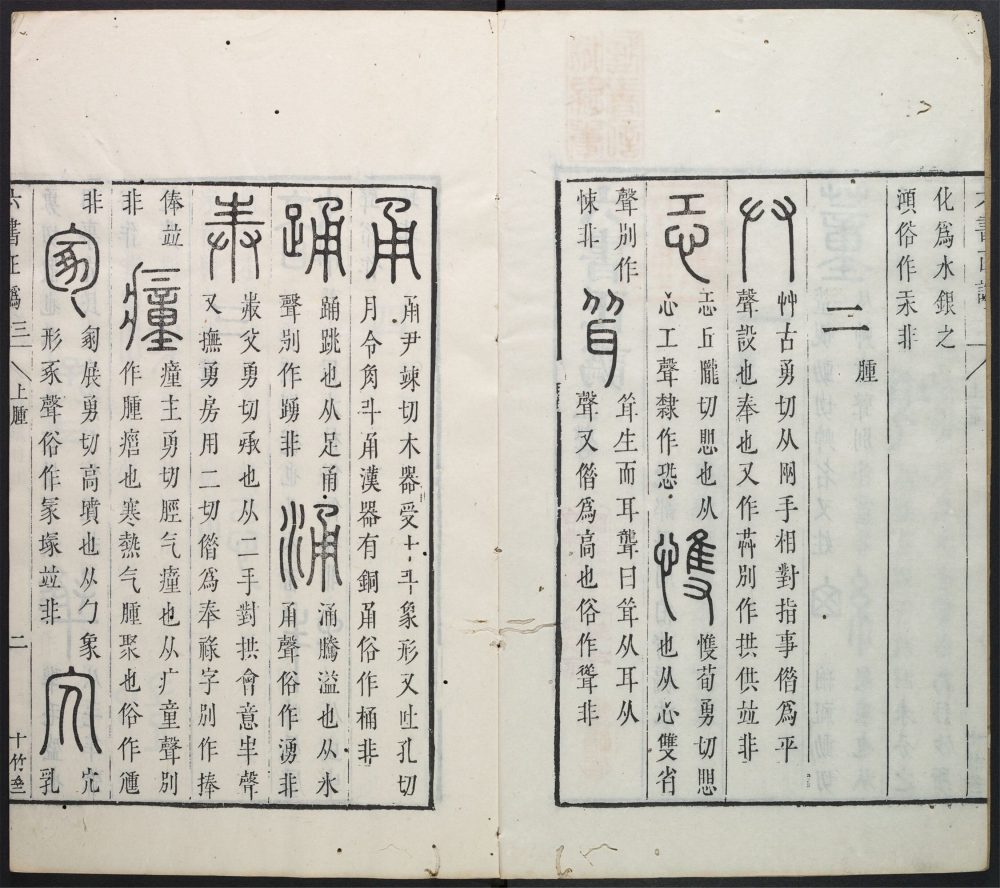 化爲水銀之
澒俗作汞非
二 腫
𠬞 艸古勇切从兩手相對指事借爲平
聲設也奉也又作𢍱別作拱供竝非
恐 㤟丘隴切思也从
心工聲隸作恐
㩳 愯荀勇切思
也从心雙省
聲別作
悚非
耸 耸生而耳聾曰耸从耳从
聲又偺爲高也俗作聳非
甬 甬尹竦切木器受十斗象形又吐孔切
月令角斗甬漢器有銅甬俗作桶非
踊 踊跳也从足甬
聲別作踴非
涌 涌騰溢也从水
甬聲俗作湧非
奉 𡘋父勇切承也从二手對拱會意半聲
又撫勇房用二切偺爲奉祿字別作捧
俸竝
非
瘇 瘇主勇切脛气瘇也从疒童聲別
作腫瘤也寒熱气腫聚也俗作尰
非
冢 冢展勇切高墳也从勹象
形豖聲俗作冡塚竝非
宂 宂
乳
六書正譌 三 上腫 二 十竹齋